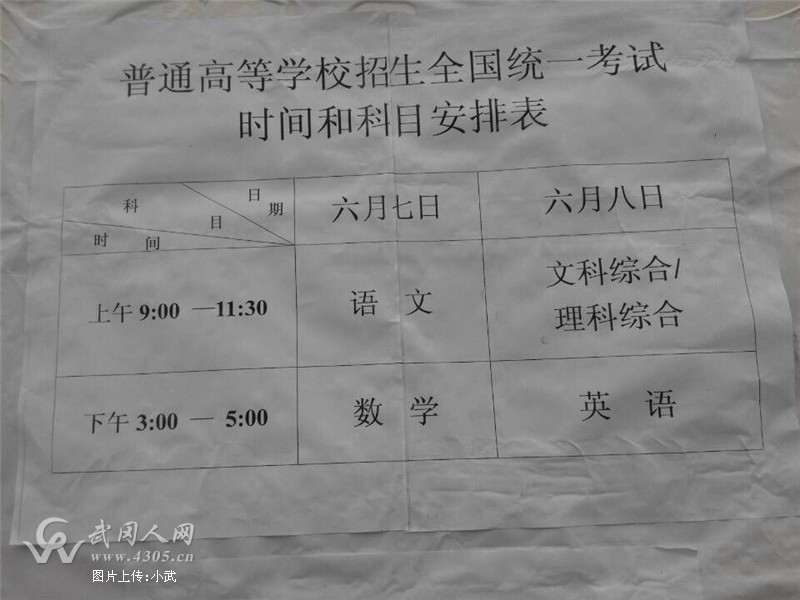 普通高等学校招生全国统一考试
时间和科目安排表
科目 日期 时间
六月七日
六月八日
上午 9:00 —11:30
语 文
文科综合/
理科综合
下午 3:00 — 5:00
数 学
英 语
武冈人网
www.4305.cn
图片上传:小武